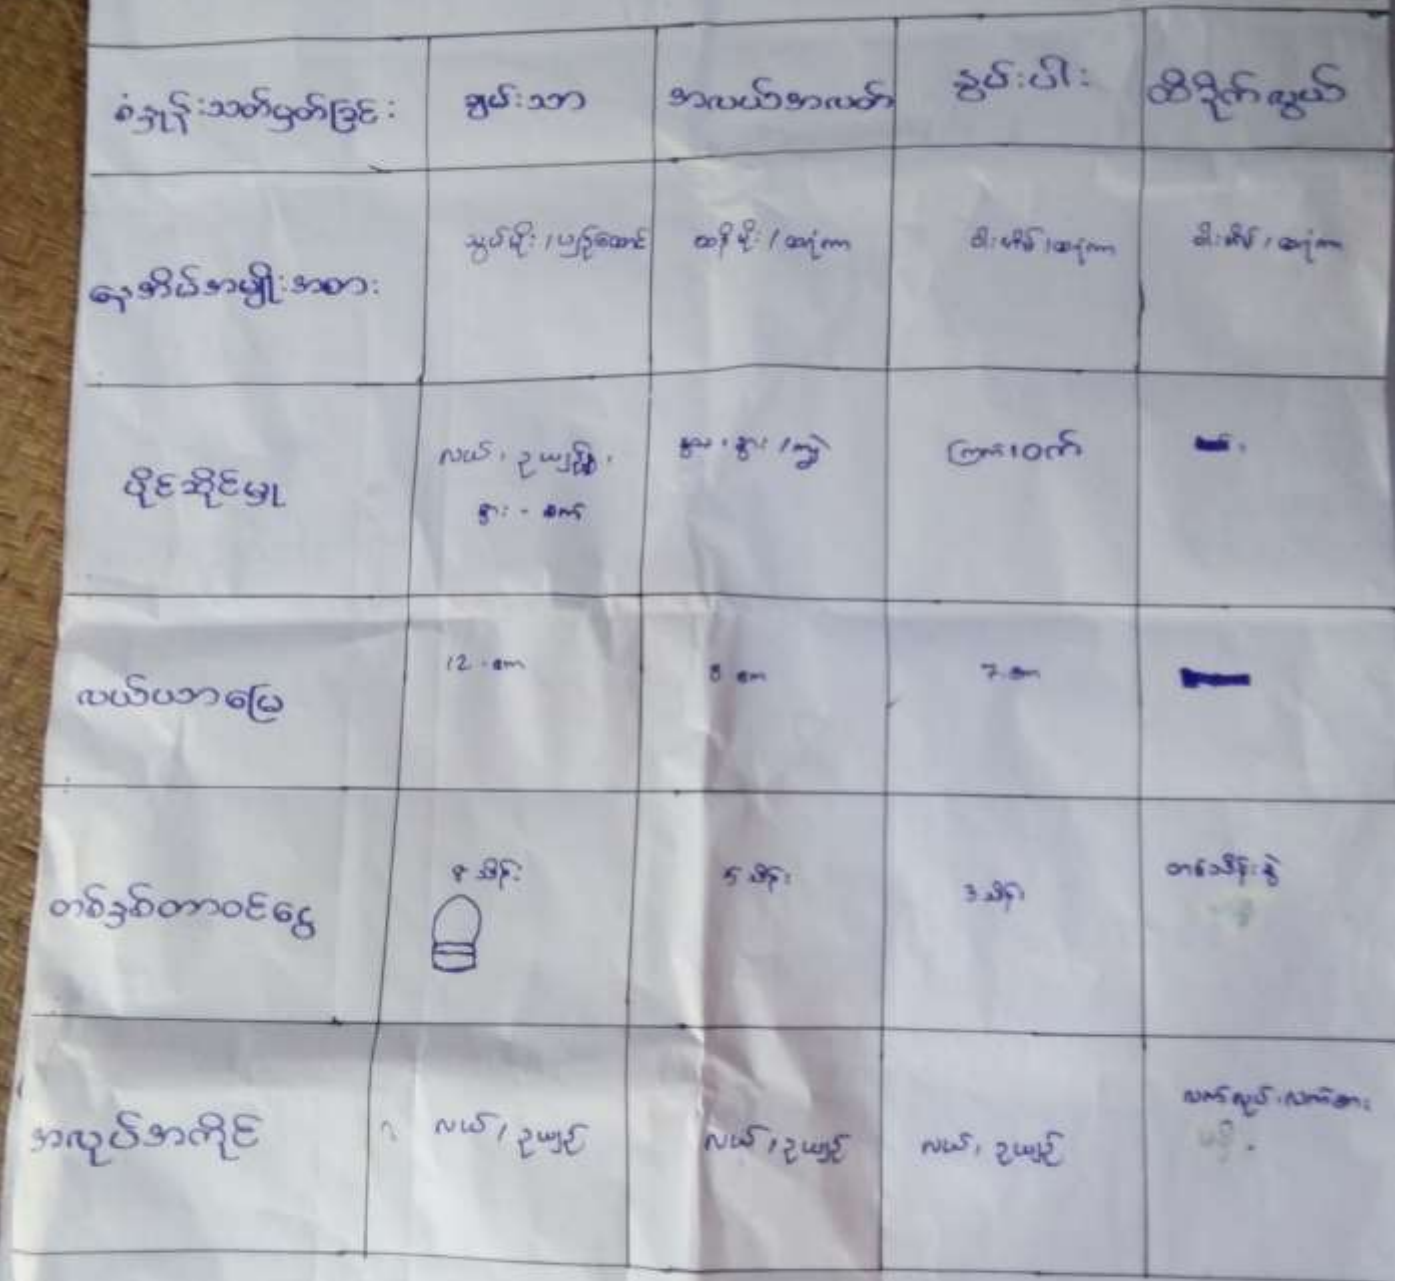 စံနှုန်းသတ်မှတ်ခြင်း ချမ်းသာ အလယ်အလတ် နွမ်းပါး ထိခိုက်လွယ်
နေအိမ်အမျိုးအစား သွပ်မိုး / ပျဉ်ထောင် ဓနိမိုး / ထရံကာ ဝါးအိမ် / ထရံကာ ဝါးအိမ် / ထရံကာ
ပိုင်ဆိုင်မှု လယ်၊ ဥယျာဉ်၊ နွား၊ / ကျွဲ ကြက်၊ ဝက်
နွား - စက်
လယ်ယာမြေ 12 ဧက 8 ဧက 7 ဧက
တစ်နှစ်တာဝင်ငွေ 8 သိန်း 5 သိန်း 3 သိန်း တစ်သိန်းခွဲ
အလုပ်အကိုင် လယ်၊ ဥယျဉ် လယ်၊ ဥယျဉ် လယ်၊ ဥယျဉ် လက်လုပ်၊ လက်စား